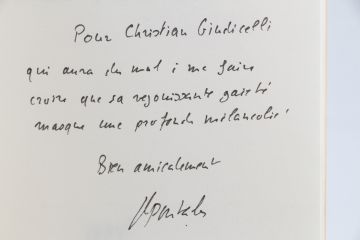 Pour Christian Giudicelli
qui aura du mal à me faire
croire que sa réjouissante gaieté
masque une profonde mélancolie !
Bien amicalement